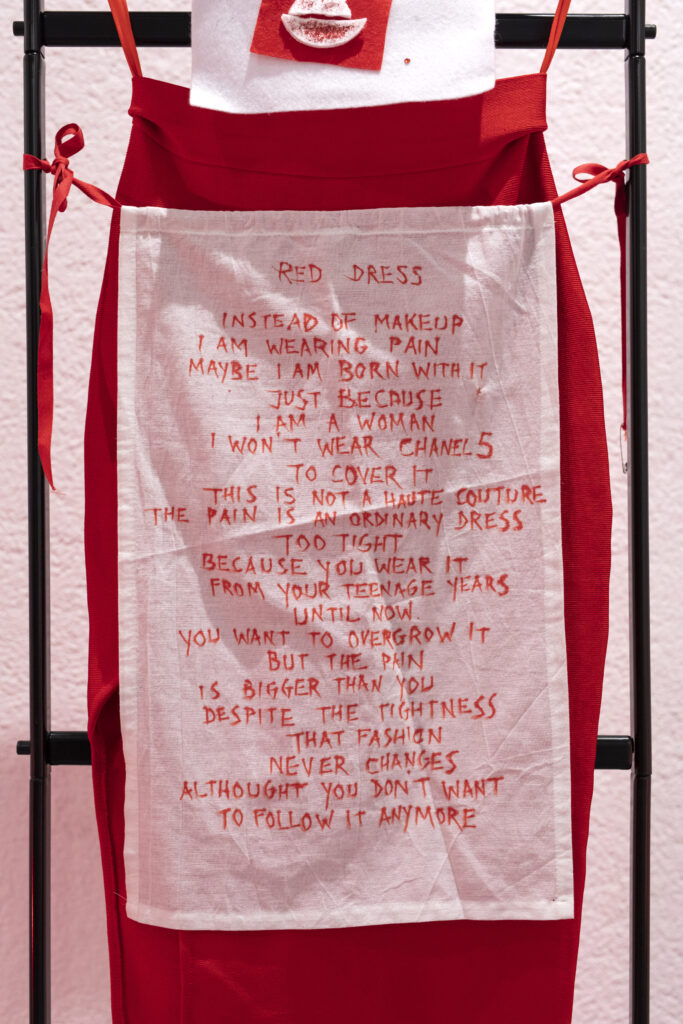 RED DRESS
INSTEAD OF MAKEUP
I AM WEARING PAIN
MAYBE I AM BORN WITH IT
JUST BECAUSE
I AM A WOMAN
I WON'T WEAR CHANEL 5
TO COVER IT
THIS IS NOT A HAUTE COUTURE
THE PAIN IS AN ORDINARY DRESS
TOO TIGHT
BECAUSE YOU WEAR IT
FROM YOUR TEENAGE YEARS
UNTIL NOW.
YOU WANT TO OVERGROW IT
BUT THE PAIN
IS BIGGER THAN YOU
DESPITE THE TIGHTNESS
THAT FASHION
NEVER CHANGES
ALTHOUGHT YOU DON'T WANT
TO FOLLOW IT ANYMORE